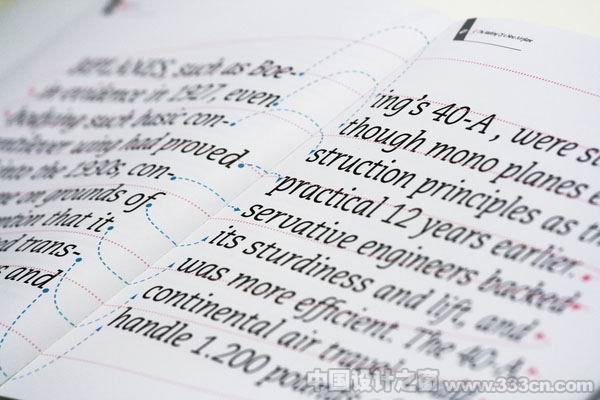 The Making Of a New Airplane
BIPLANES, such as Boe-ing's 40-A, were
in evidence in 1927, even though mono planes
bodying such basic con-struction principles as
wing had proved practical 12 years earlier.
the 1930s, con-servative engineers backed
on grounds of its sturdiness and lift, and
that it was more efficient. The 40-A
trans-continental air travel
and handle 1.200
中国设计之窗 www.333cn.com